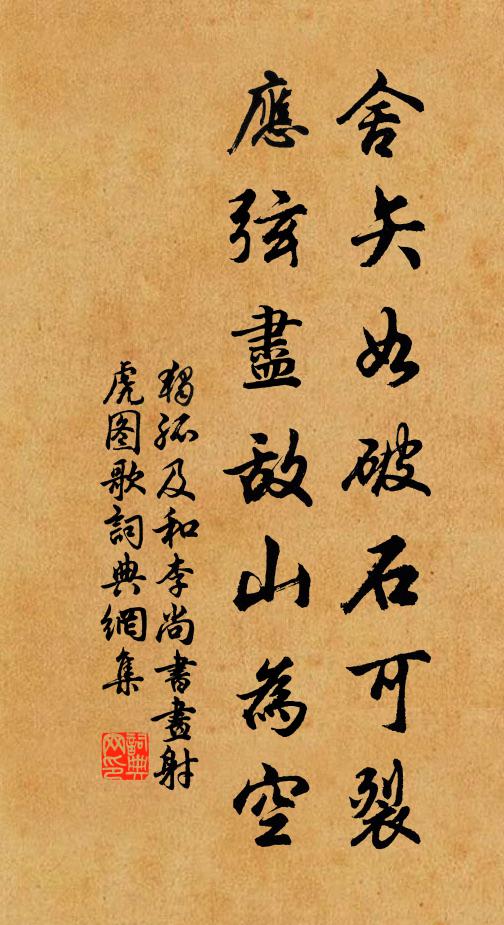 舍矢如破石可裂
應弦盡敵山為空
獨孤及和李尚書畫射
虎图歌詞典網集
詞典
网印